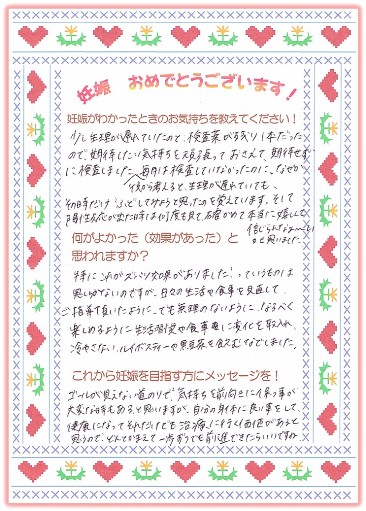 妊娠 おめでとうございます！
妊娠がわかったときのお気持ちを教えてください！
少し生理が遅れていたので、検査薬が残り1本だった
ので、期待したい気持ちを頑張っておさえて、期待せず
に検査しました。毎月は検査していなかったのに、なぜか
後から考えると、生理が遅れていても、
陽性反応が出た時は何度も見て確かめて本当に嬉しくて
信じられなぁ〜い
と思いました。
何がよかった（効果があった）と
思われますか？
特にこれがズバリ効果がありました！っていうものは
思いつかないのですが、日々の生活や食事を見直して
ご指導頂いたように、でも無理のないように、なるべく
楽しめるように生活習慣や食事面に変化を取入れ、
冷やさない、ルイボスティーや黒豆茶を飲むなどしました。
これから妊娠を目指す方にメッセージを！
ゴールが見えない道のりで、気持ちを前向きに保つ事が
大変な時もあると思いますが、自分の身体に良い事をして、
健康になってそれだけでも治療に行く価値があると
思うので、一歩ずつでも前に進できたらいいですね